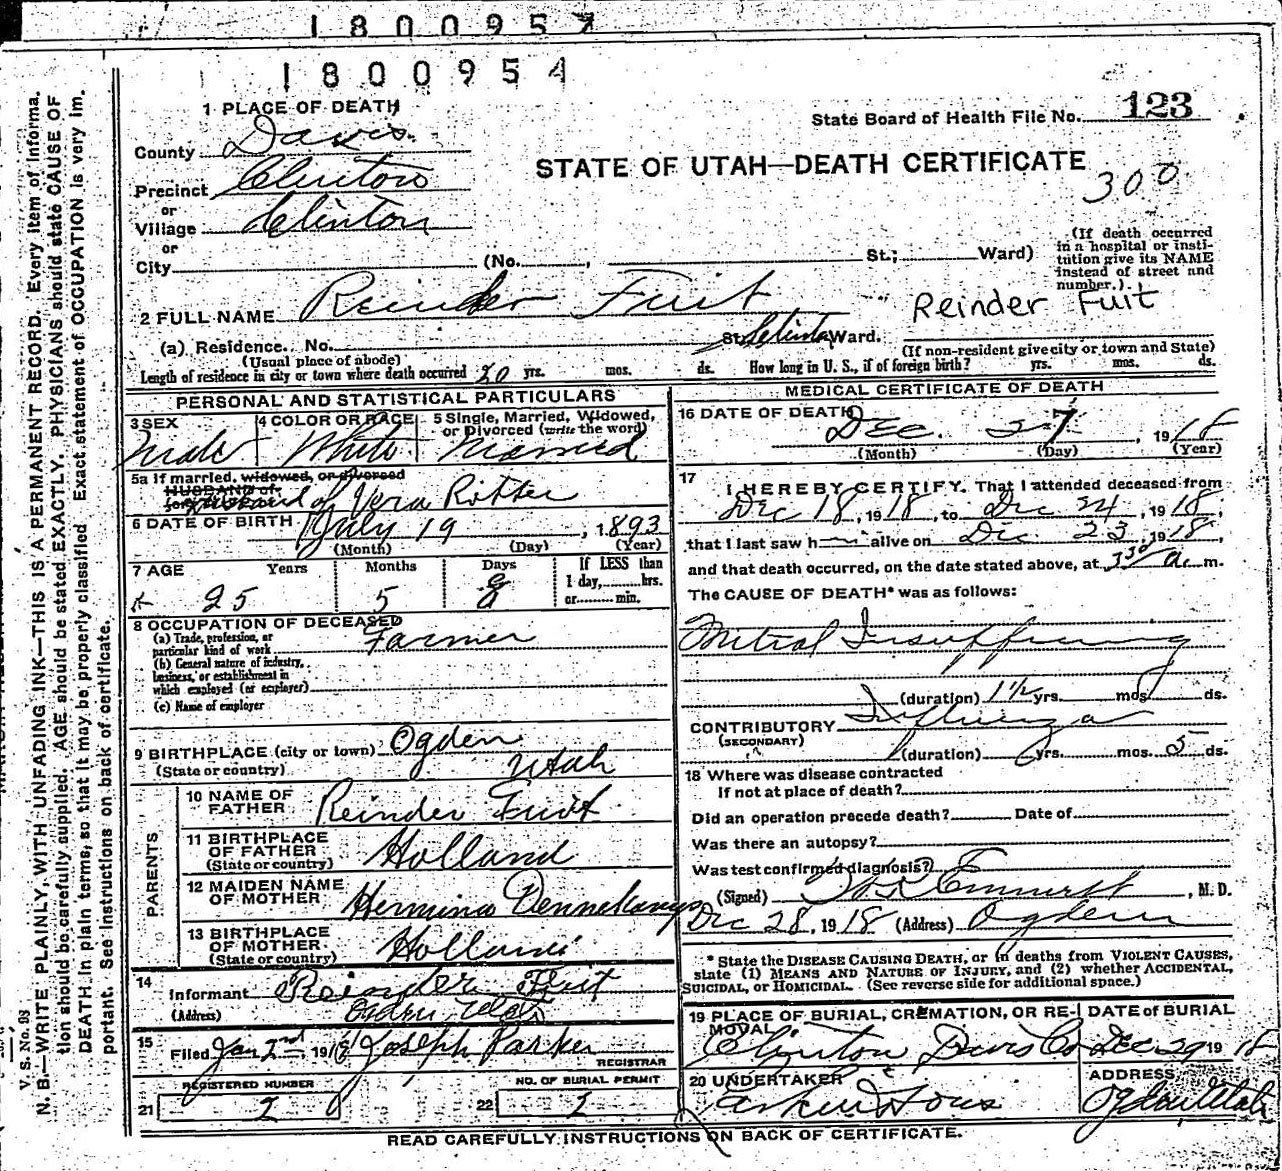 1800957
1800954
1 PLACE OF DEATH
State Board of Health File No. 123
County Davis
STATE OF UTAH—DEATH CERTIFICATE
300
Precinct Clinton
or
Village Clinton
or
City (No. , St.; Ward)
(If death occurred in a hospital or insti-
tution give its NAME
instead of street and
number.)
2 FULL NAME Reinder Fuit
Reinder Fuit
(a) Residence. No. St. Clinton Ward.
(Usual place of abode)
(If non-resident give city or town and State)
Length of residence in city or town where death occurred 20 yrs. mos. ds. How long in U. S., if of foreign birth? yrs. mos. ds.
PERSONAL AND STATISTICAL PARTICULARS
3 SEX
Male
4 COLOR OR RACE
White
5 Single, Married, Widowed,
or Divorced (write the word)
Married
5a If married, widowed, or divorced
HUSBAND of
Husband of Vera Ritter
6 DATE OF BIRTH July 19, 1893
(Month) (Day) (Year)
7 AGE Years Months Days If LESS than
1 day, hrs.
or min.
25 5 8
8 OCCUPATION OF DECEASED
(a) Trade, profession, or
particular kind of work Farmer
(b) General nature of industry,
business, or establishment in
which employed (or employer)
(c) Name of employer
9 BIRTHPLACE (city or town) Ogden
(State or country) Utah
PARENTS
10 NAME OF
FATHER Reinder Fuit
11 BIRTHPLACE
OF FATHER
(State or country) Holland
12 MAIDEN NAME
OF MOTHER Hermina
13 BIRTHPLACE
OF MOTHER
(State or country) Holland
14
Informant Reinder Fuit
(Address) Ogden Utah
15
Filed Jan 2nd 191 Joseph Parker
REGISTRAR
REGISTERED NUMBER
21 2
NO. OF BURIAL PERMIT
22 2
MEDICAL CERTIFICATE OF DEATH
16 DATE OF DEATH Dec. 27, 1918
(Month) (Day) (Year)
17
I HEREBY CERTIFY. That I attended deceased from
Dec 18, 1918, to Dec 24, 1918,
that I last saw h alive on Dec 23, 1918,
and that death occurred, on the date stated above, at 3 30 a. m.
The CAUSE OF DEATH* was as follows:
Mitral Insufficiency
(duration) 1 1/2 yrs. mos. ds.
CONTRIBUTORY Influenza
(SECONDARY)
(duration) yrs. mos. 5 ds.
18 Where was disease contracted
If not at place of death?
Did an operation precede death? Date of
Was there an autopsy?
Was test confirmed diagnosis?
(Signed) Emmett, M. D.
Dec 28, 1918 (Address) Ogden
* State the DISEASE CAUSING DEATH, or in deaths from VIOLENT CAUSES,
state (1) MEANS AND NATURE OF INJURY, and (2) whether ACCIDENTAL,
SUICIDAL, OR HOMICIDAL. (See reverse side for additional space.)
19 PLACE OF BURIAL, CREMATION, OR RE-
MOVAL
Clinton Davis Co
DATE OF BURIAL
Dec 29 1918
20 UNDERTAKER
Larkin & Sons
ADDRESS
Ogden Utah
READ CAREFULLY INSTRUCTIONS ON BACK OF CERTIFICATE.
V. S. No. 98
N. B.—WRITE PLAINLY, WITH UNFADING INK—THIS IS A PERMANENT RECORD. Every item of informa-
tion should be carefully supplied. AGE should be stated EXACTLY. PHYSICIANS should state CAUSE OF
DEATH in plain terms, so that it may be properly classified. Exact statement of OCCUPATION is very im-
portant. See instructions on back of certificate.